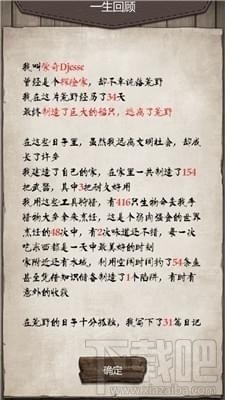 一生回顾
我叫紫奇Djesse
曾经是个探险家，却不幸流落荒野
我在这片荒野经历了34天
最终制造了巨大的船只，逃离了荒野
在这些日子里，虽然我远离文明社会，却成
长了许多
我建造了自己的家，在家里一共制造了154
把武器，其中3把耐久好用
我用这些工具狩猎，有416只生物命丧我手
猎物大多拿来烹饪，这是个弱肉强食的世界
烹饪的48次中，有2次味道还不错，每一次
吃东西都是一天中最美好的时刻
家附近还有水域，利用空闲时间钓了54条鱼
甚至凭借知识储备制造了1个陷阱，有时有
意外的收获
在荒野的日子十分孤独，我写下了31篇日记
确定
下载吧
www.xiazaiba.com